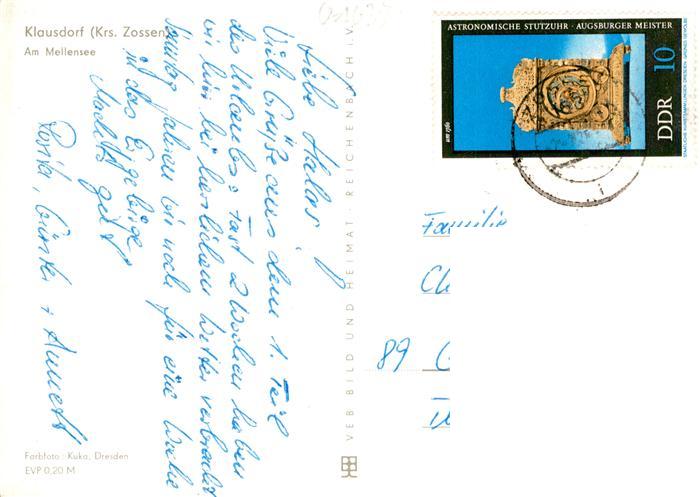 Klausdorf (Krs. Zossen)
Am Mellensee
Liebe
Viele Grüße aus dem 1. Teil
des Urlaubes. Fast 2 Wochen haben
wir hier bei herrlichem Wetter verbracht.
Sonntag fahren wir noch für eine Woche
in das Erzgebirge.
Macht's gut
Günter + Annett
Farbfoto: Kuka, Dresden
EVP 0,20 M
VEB BILD UND HEIMAT REICHENBACH V
ASTRONOMISCHE STUTZUHR · AUGSBURGER MEISTER
um 1560
DDR 10
Familie
89